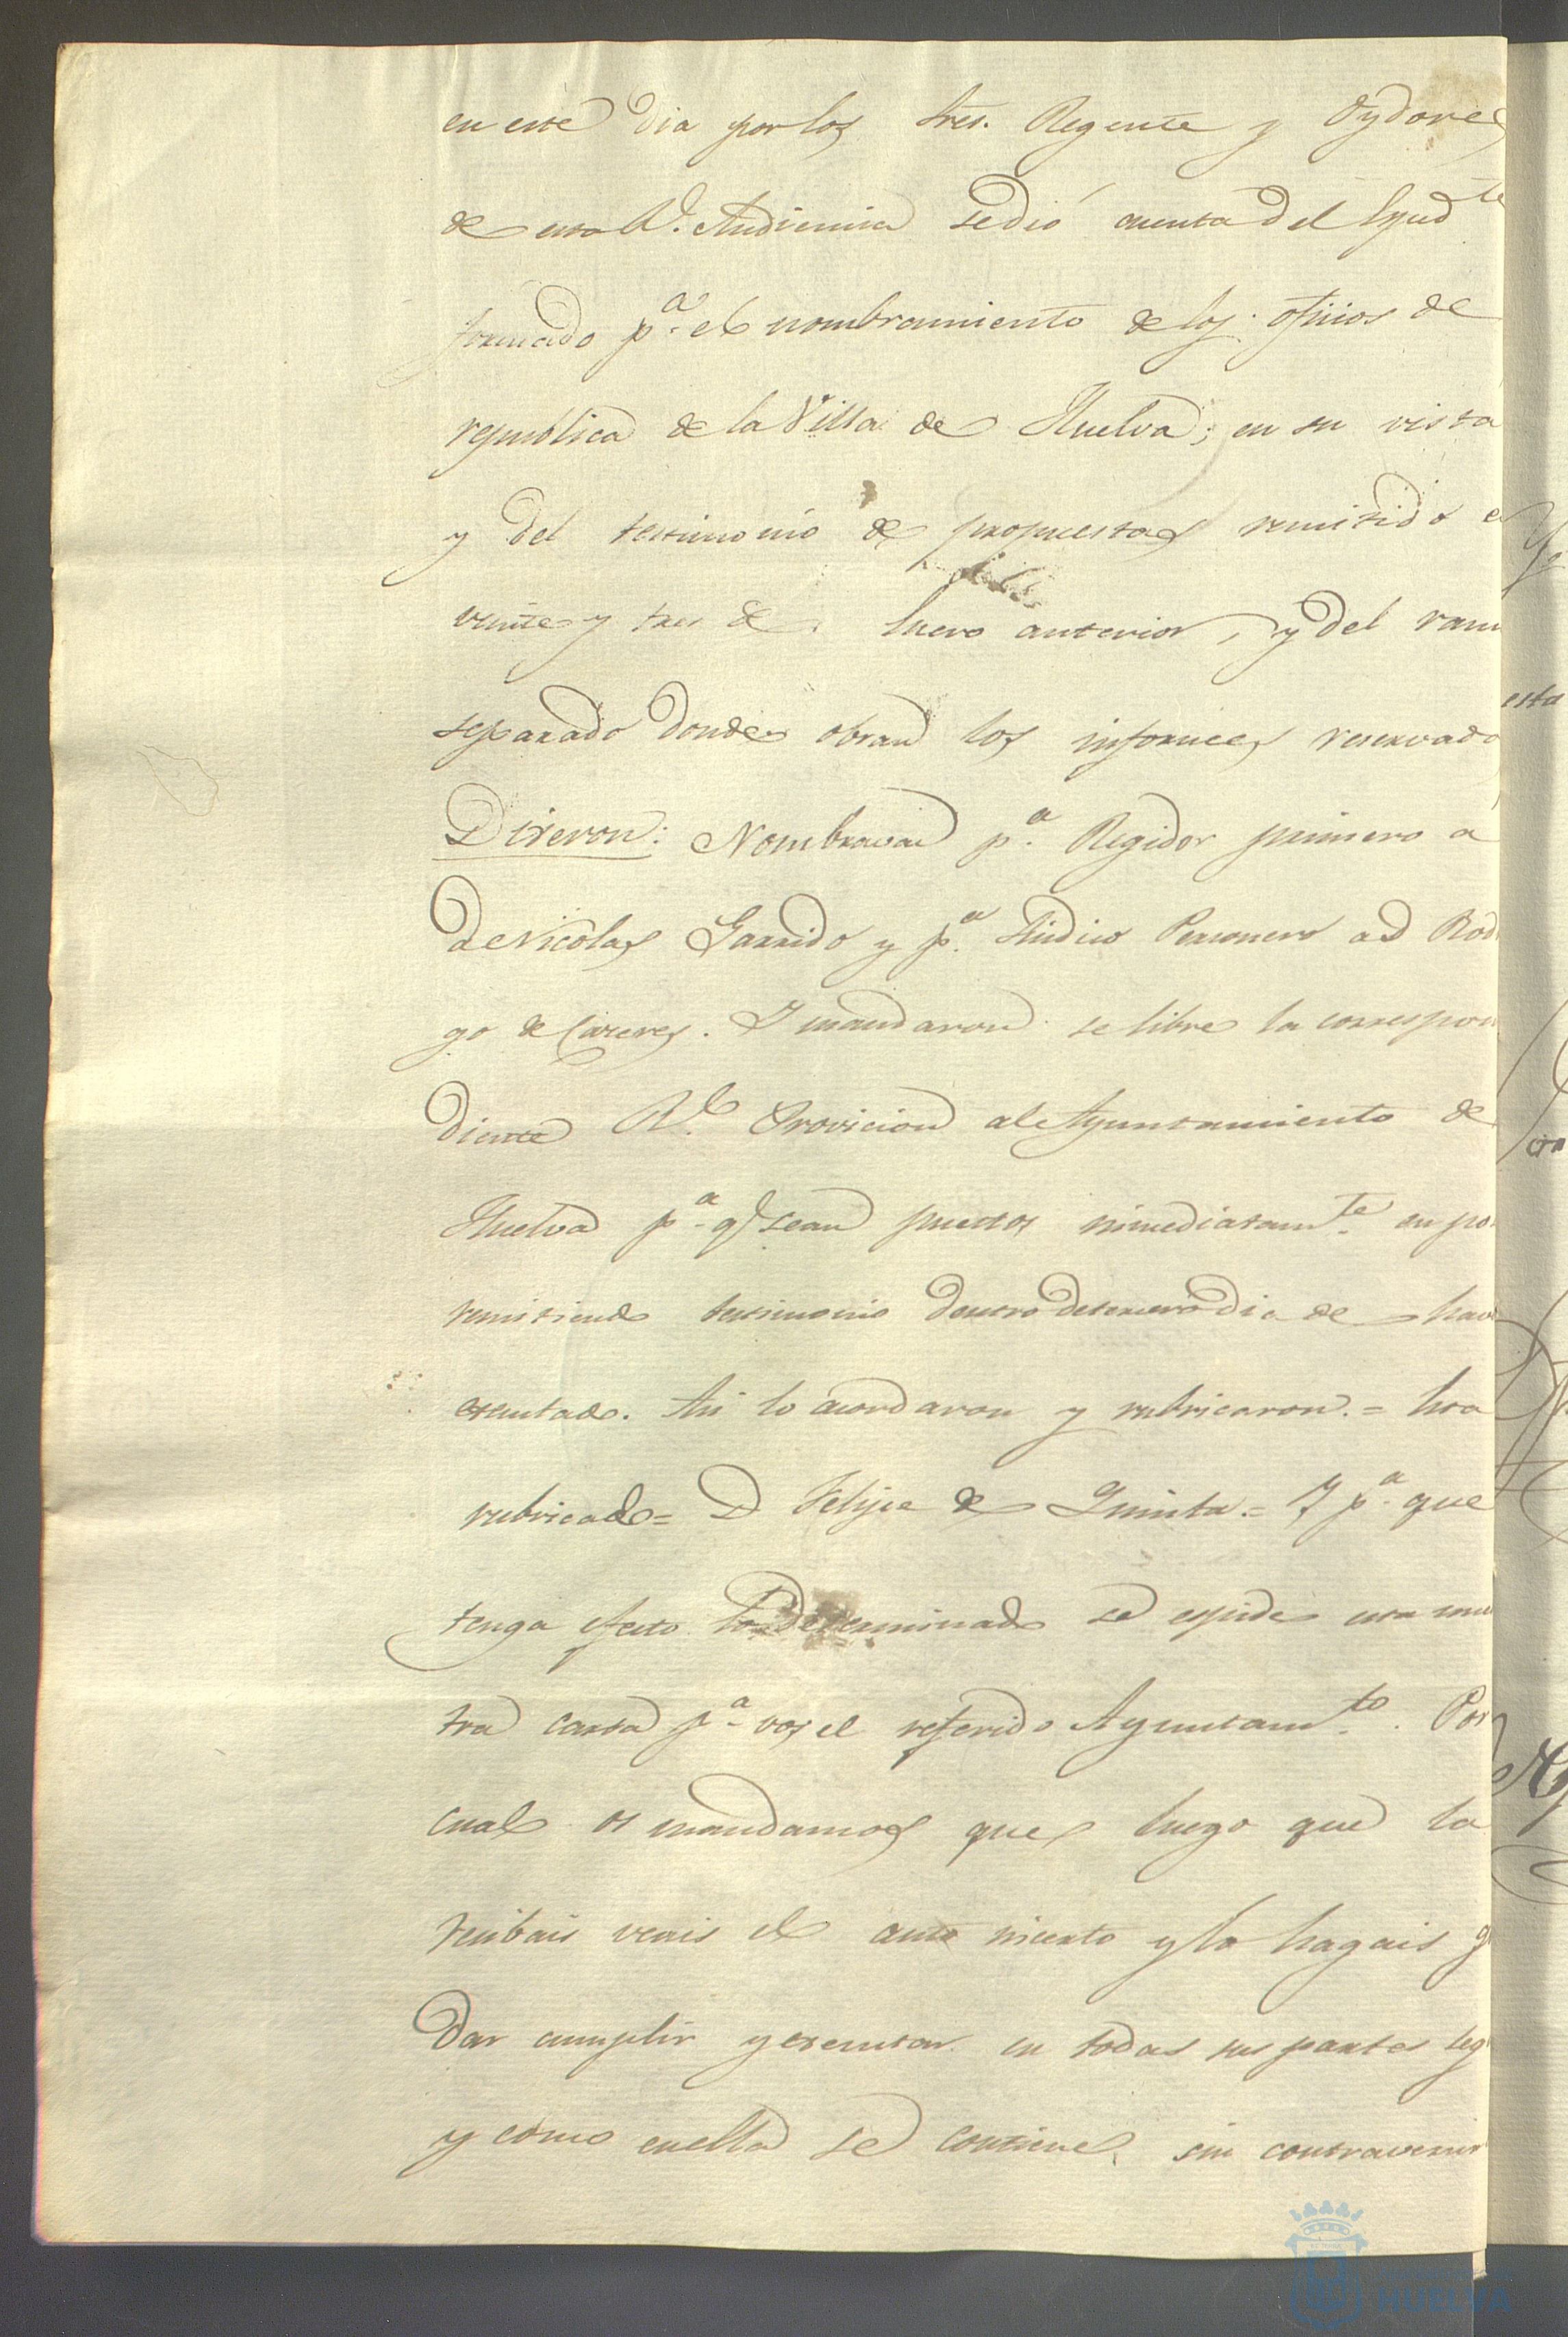 en este Dia por los Sres. Regente y Oydores
de esta Rl. Audiencia se dió cuenta del Exped.te
formado p.a el nombramiento de los oficios de
republica de la Villa de Huelva; en su vista
y del testimonio de propuestas remitido e
veinte y tres de Enero anterior, y del ram
separado donde obran los informes reservado
Dixeron: Nombravan p.a Regidor primero a
Dn Nicolas Garrido y p.a Sindico Personero a D Rod
go de Cazeres. Y mandaron se libre la correspon
diente Rl. Provicion al Ayuntamiento de
Huelva p.a q.e sean puestos inmediatam.te en po
remitiendo testimonio dentro de tercero dia de hav
executado. Asi lo acordaron y rubricaron. = Esta
rubricado = D Felipe de Quinta. = Y p.a que
tenga efecto lo determinado se espide esta nue
tra carta p.a vos el referido Ayuntam.to. Por
cual os mandamos que luego que la
recibais veais el auto incerto y lo hagais g
dar cumplir y executar en todas sus partes seg
y como en ella se contiene, sin contravenir
HUELVA